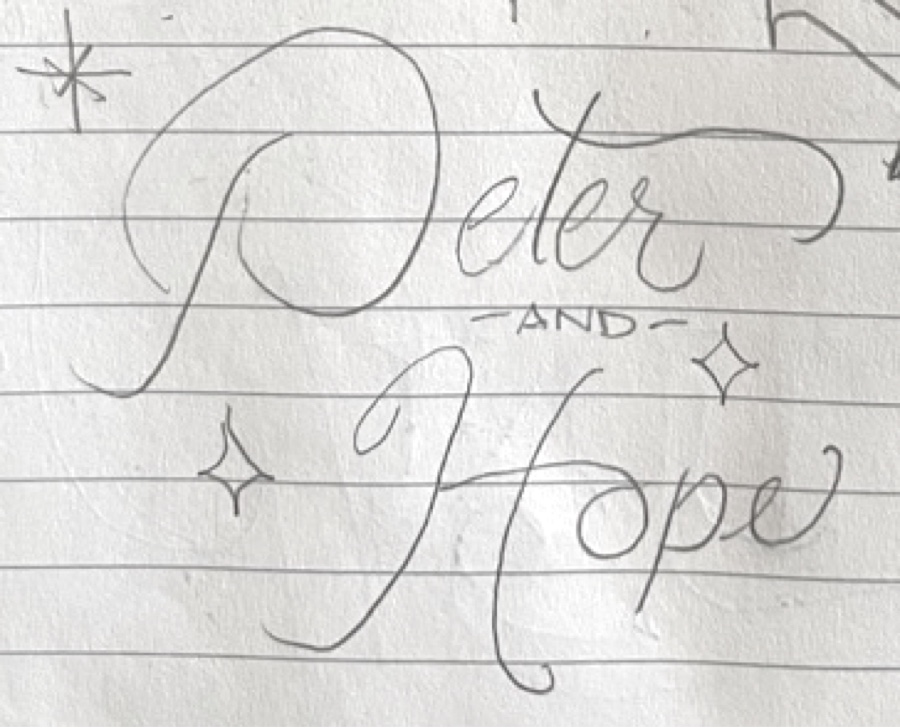 Peter
-AND-
Hope